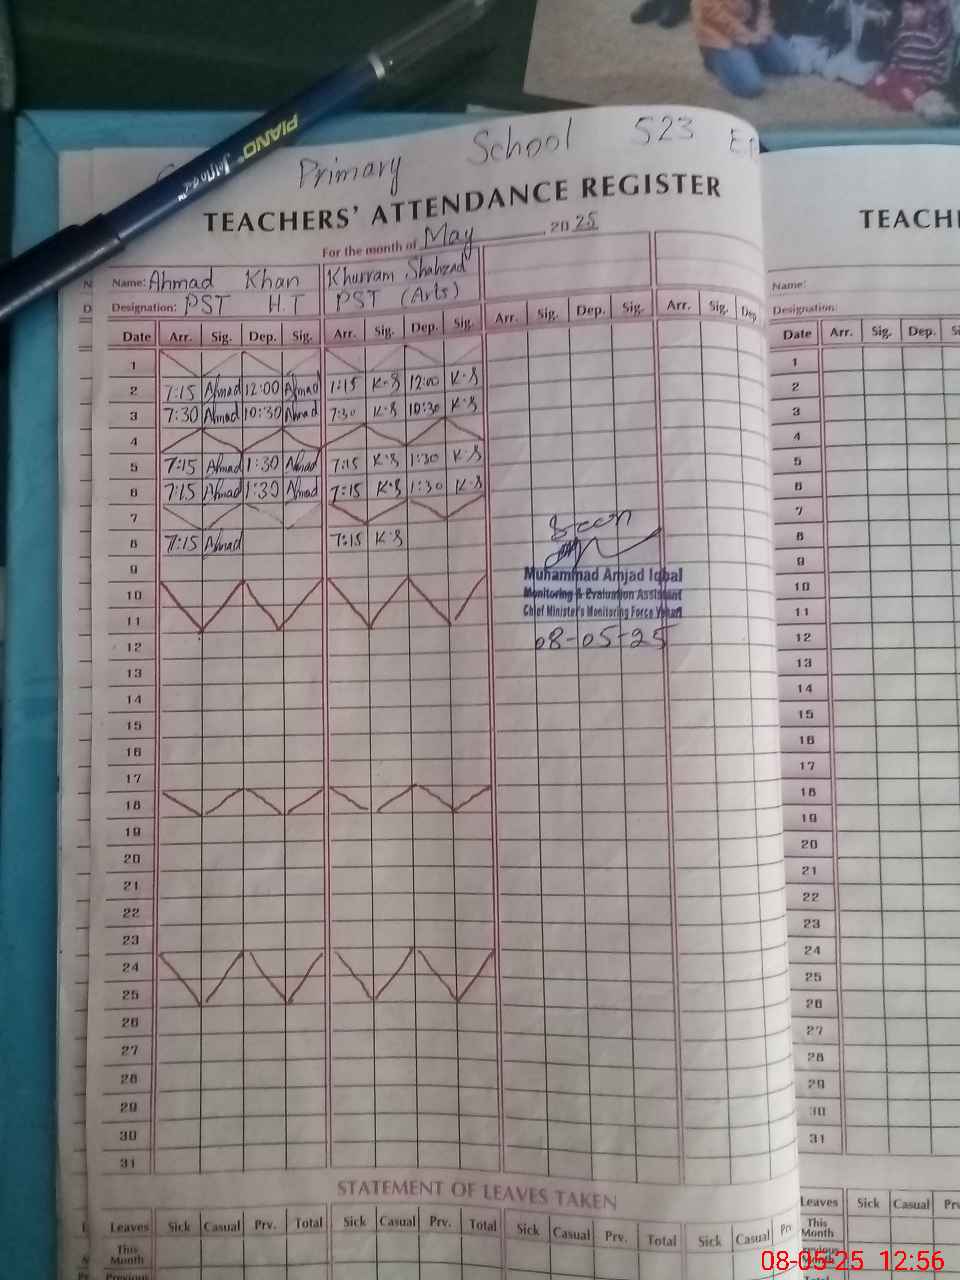 PIANO
Primary School 523
TEACHERS' ATTENDANCE REGISTER
For the month of May 2025
Name: Ahmad Khan Khurram Shahzad
Designation: PST H.T PST (Arts)
Date Arr. Sig. Dep. Sig. Arr. Sig. Dep. Sig. Arr. Sig. Dep. Sig. Arr. Sig. Dep.
1
2 7:15 Ahmad 12:00 Ahmad 7:15 K.S 12:00 K.S
3 7:30 Ahmad 10:30 Ahmad 7:30 K.S 10:30 K.S
4
5 7:15 Ahmad 1:30 Ahmad 7:15 K.S 1:30 K.S
6 7:15 Ahmad 1:30 Ahmad 7:15 K.S 1:30 K.S
7
8 7:15 Ahmad 7:15 K.S
9
10
11
12
13
14
15
16
17
18
19
20
21
22
23
24
25
26
27
28
29
30
31
Seen
Muhammad Amjad Iqbal
Monitoring & Evaluation Assistant
Chief Minister's Monitoring Force
08-05-25
STATEMENT OF LEAVES TAKEN
Leaves Sick Casual Prv. Total Sick Casual Prv. Total Sick Casual Prv. Total Sick Casual
This
Month
Previous
TEACH
Name:
Designation:
Date Arr. Sig. Dep.
1
2
3
4
5
6
7
8
9
10
11
12
13
14
15
16
17
18
19
20
21
22
23
24
25
26
27
28
29
30
31
Leaves Sick Casual
This
Month
Previous
08-05-25 12:56